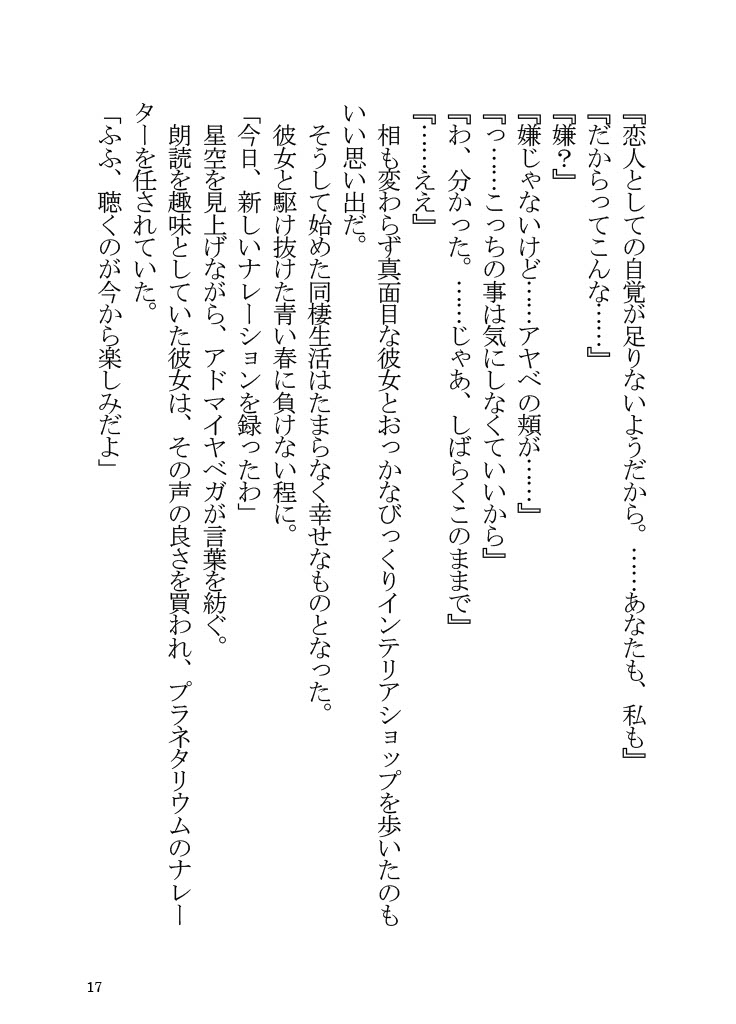 『恋人としての自覚が足りないようだから。……あなたも、私も』
『だからってこんな……』
『嫌？』
『嫌じゃないけど……アヤベの頬が……』
『っ……こっちの事は気にしなくていいから』
『わ、分かった。……じゃあ、しばらくこのままで』
『……ええ』
　相も変わらず真面目な彼女とおっかなびっくりインテリアショップを歩いたのも
いい思い出だ。
　そうして始めた同棲生活はたまらなく幸せなものとなった。
　彼女と駆け抜けた青い春に負けない程に。
「今日、新しいナレーションを録ったわ」
　星空を見上げながら、アドマイヤベガが言葉を紡ぐ。
　朗読を趣味としていた彼女は、その声の良さを買われ、プラネタリウムのナレー
ターを任されていた。
「ふふ、聴くのが今から楽しみだよ」
17